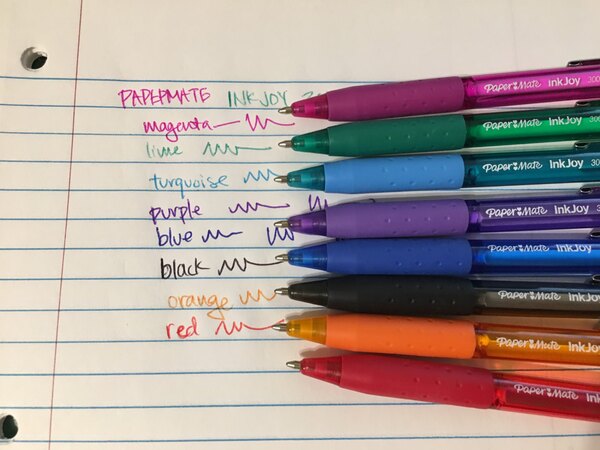 PAPERMATE INKJOY
magenta
lime
turquoise
purple
blue
black
orange
red
Paper Mate InkJoy 300
Paper Mate InkJoy 300
Paper Mate InkJoy 300
Paper Mate InkJoy
Paper Mate InkJoy
Paper Mate InkJoy
Paper Mate InkJoy
Paper Mate InkJoy